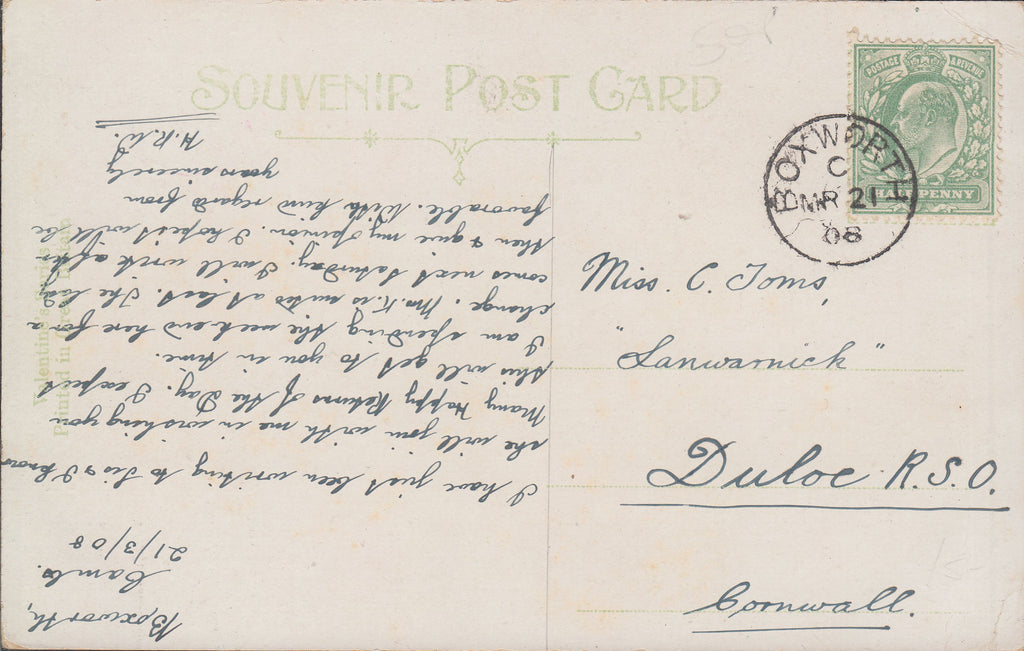 SOUVENIR POST CARD
POSTAGE & REVENUE
HALFPENNY
BOXWORTH
C
MR 21
08
Miss. C. Toms,
"Lanwarnick"
Duloe R.S.O.
Cornwall.
Valentine's Series
Printed in Great Britain
Boxworth,
Cambs.
21/3/08
I have just been writing to Sis & I know
she will join with me in wishing you
Many Happy Returns of the Day. I expect
this will get to you in time.
I am spending the weekend here for a
change. Mr. K. is suited at last. The lad
comes next Saturday. I will write after
then & give my opinion. I hope it will be
favorable. With kind regard from
yours sincerely
H.R.W.